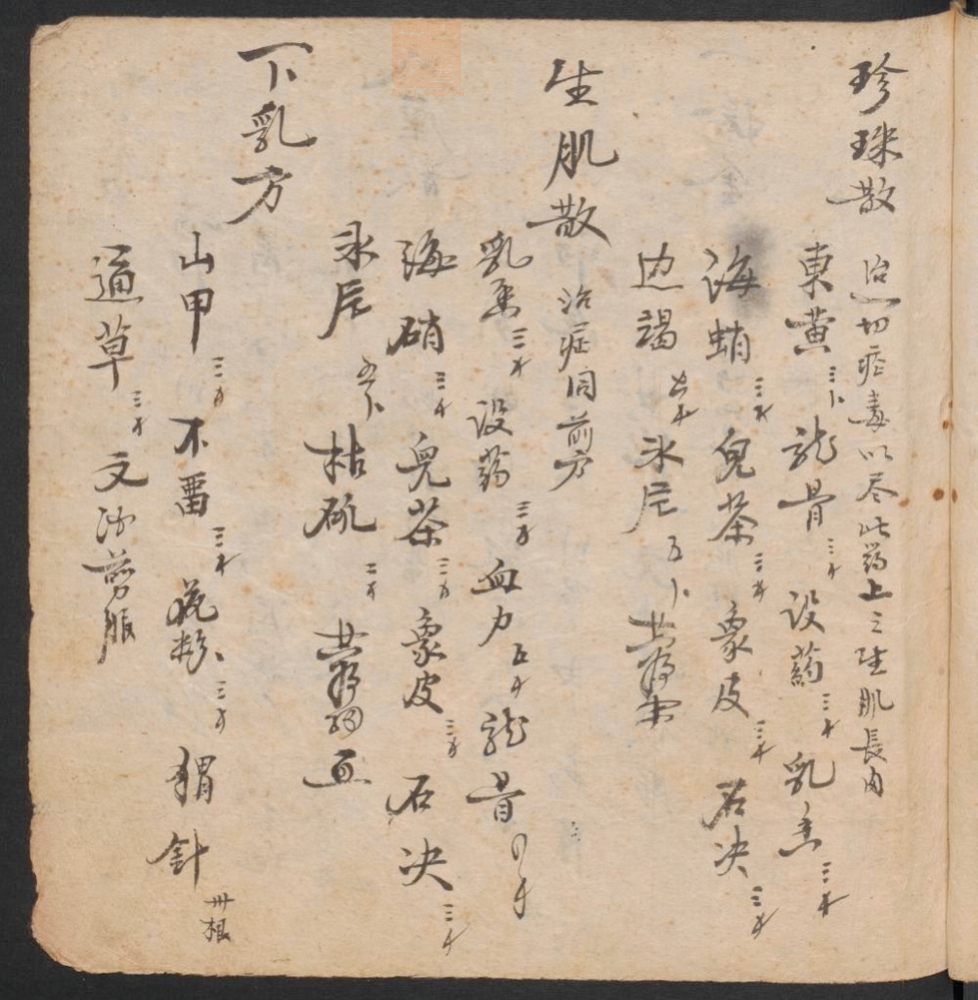 珍珠散 治一切疮毒以尽此药上之生肌長肉
東黄三卜 龍骨三才 没药三才 乳香三才
海蛸三才 兒茶三才 象皮三才 石决三才
边竭 七才 冰片五卜 共為末
生肌散 治症同前方
乳香三才 没药三才 血力五才 龍骨
海硝三才 兒茶三才 象皮三才 石决三才
冰片五卜 枯矾二才 共為細面
下乳方
山甲三才 不畱三才 花粉三才 猬針卅根
通草三才 文沙剪服